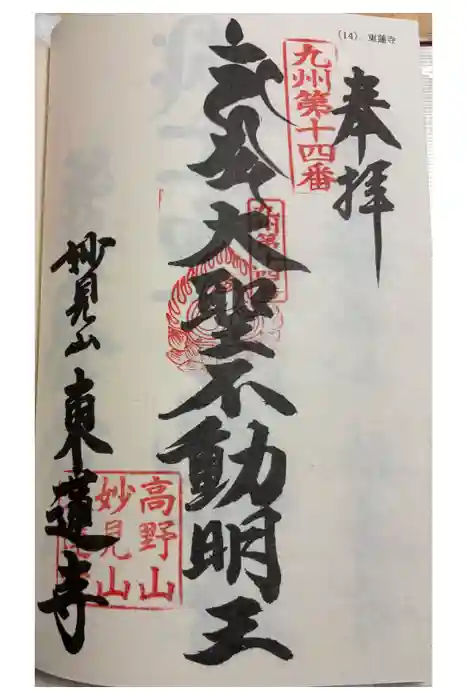 (14) 東蓮寺
奉拝
九州第十四番
大聖不動明王
妙見山 東蓮寺
高野山
妙見山